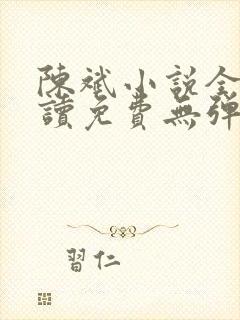 陳斌小說全
讀免費無彈
習仁